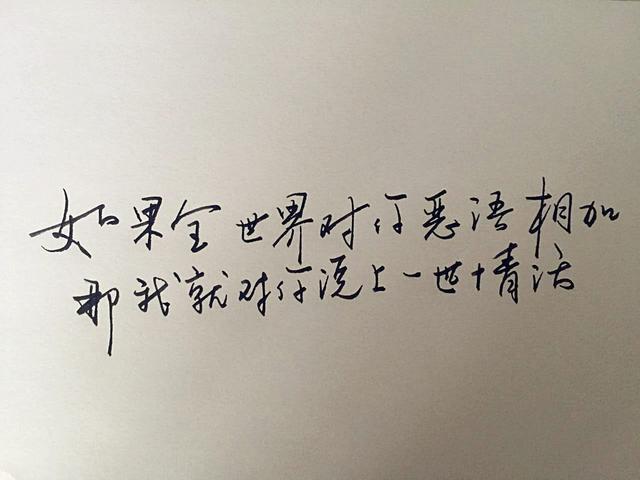 如果全世界对你恶语相加
那我就对你说上一世情话